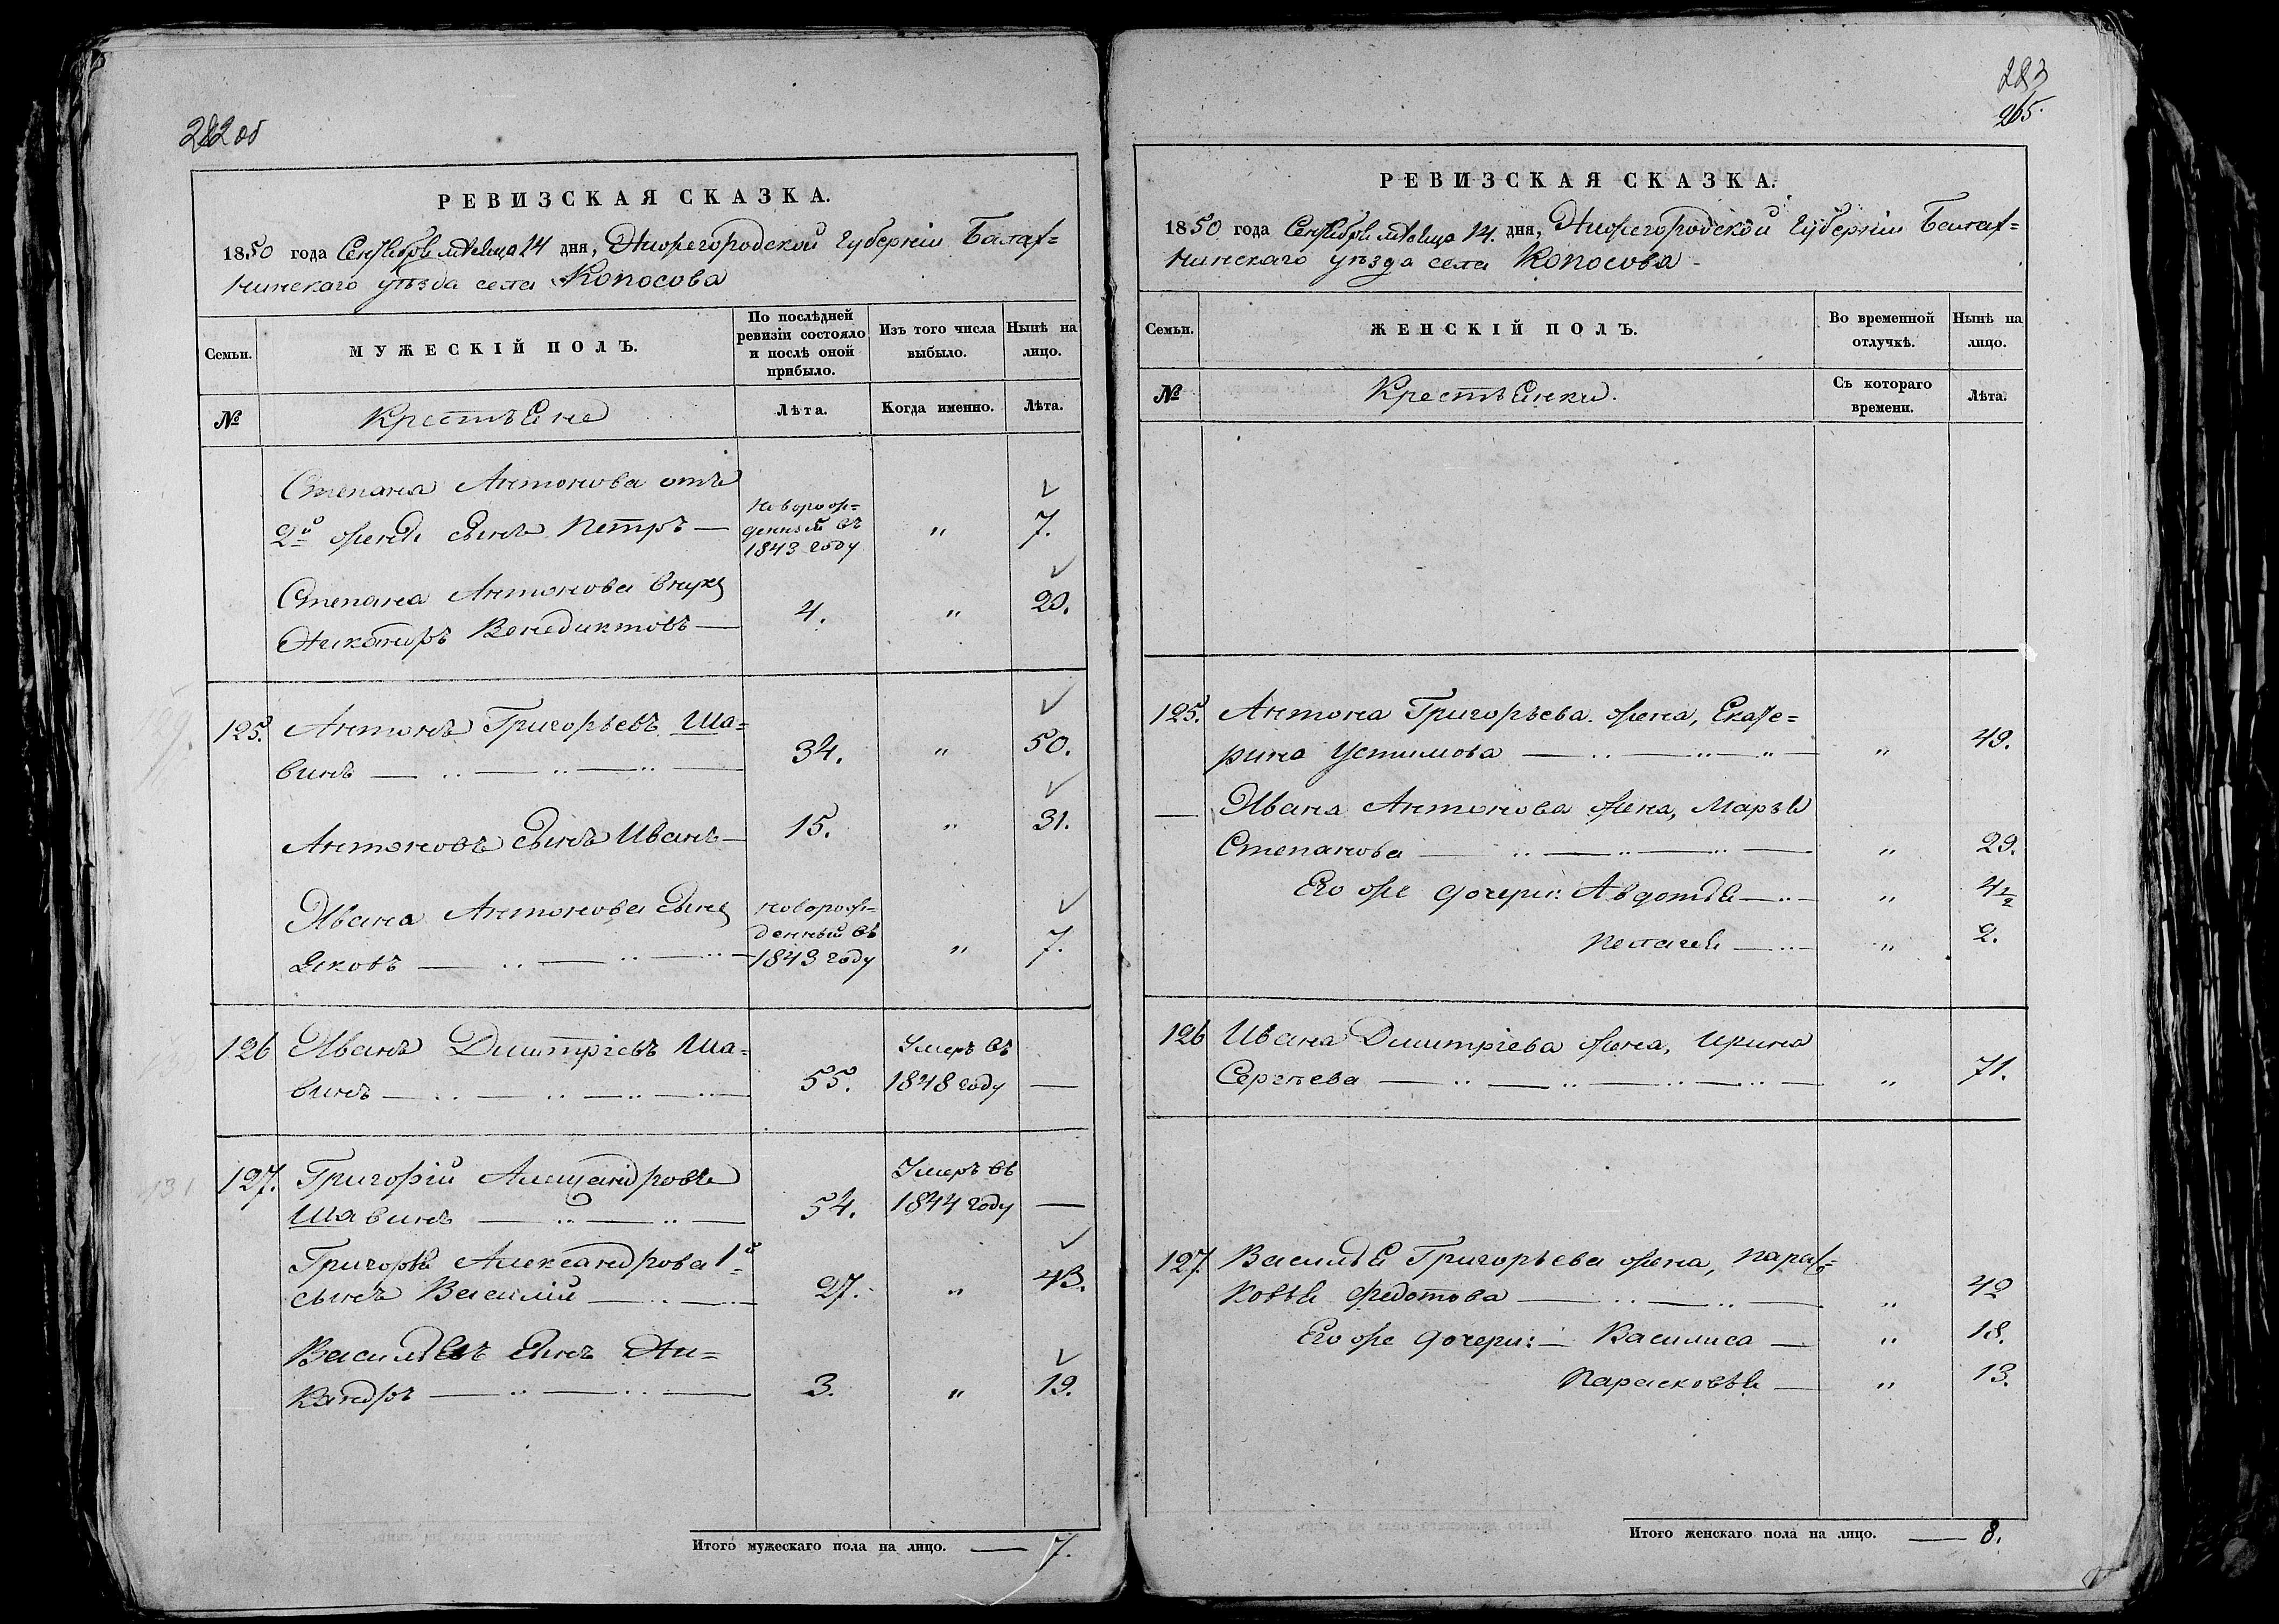 282 об
РЕВИЗСКАЯ СКАЗКА.
1850 года Сентября мѣсяца 14 дня, Нижегородской губерніи Балах=
нинскаго уѣзда села Копосова
Семьи.
МУЖЕСКІЙ ПОЛЪ.
По послѣдней
ревизіи состояло
и послѣ оной
прибыло.
Изъ того числа
выбыло.
Нынѣ на
лицо.
№
Крестьяне
Лѣта.
Когда именно.
Лѣта.
Степана Антонова отъ
2й жены сынъ Петръ —
новорож=
денный въ
1843 году
„
7.
Степана Антонова внукъ
Никаноръ Венедиктовъ —
4.
„
20.
125. Антонъ Григорьевъ Ша=
винъ
34.
„
50.
Антоновъ сынъ Иванъ —
15.
„
31.
Ивана Антонова сынъ
Яковъ
новорож=
денный въ
1843 году
„
7.
126 Иванъ Димитріевъ Ша=
винъ
55.
Умеръ въ
1848 году
—
127. Григорій Александровъ
Шавинъ
54.
Умеръ въ
1844 году
—
Григорья Александрова 1й
сынъ Василій
27.
„
43.
Васильевъ сынъ Ни=
каноръ
3.
„
19.
Итого мужескаго пола на лицо. — 7.
283
265.
РЕВИЗСКАЯ СКАЗКА.
1850 года Сентября мѣсяца 14. дня, Нижегородской губерніи Балах=
нинскаго уѣзда села Копосова
Семьи.
ЖЕНСКІЙ ПОЛЪ.
Во временной
отлучкѣ.
Нынѣ на
лицо.
№
Крестьянки.
Съ котораго
времени.
Лѣта.
125. Антона Григорьева жена, Екате=
рина Устимова
„
49.
— Ивана Антонова жена, Марья
Степанова
„
29.
Его же дочери: Авдотья
„
4½
Пелагея
„
2.
126 Ивана Димитріева жена, Ирина
Сергѣева
„
71.
127. Василья Григорьева жена, Парас=
ковья Федотова
„
42
Его же дочери: — Василиса —
„
18.
Парасковья —
„
13.
Итого женскаго пола на лицо. — 8.